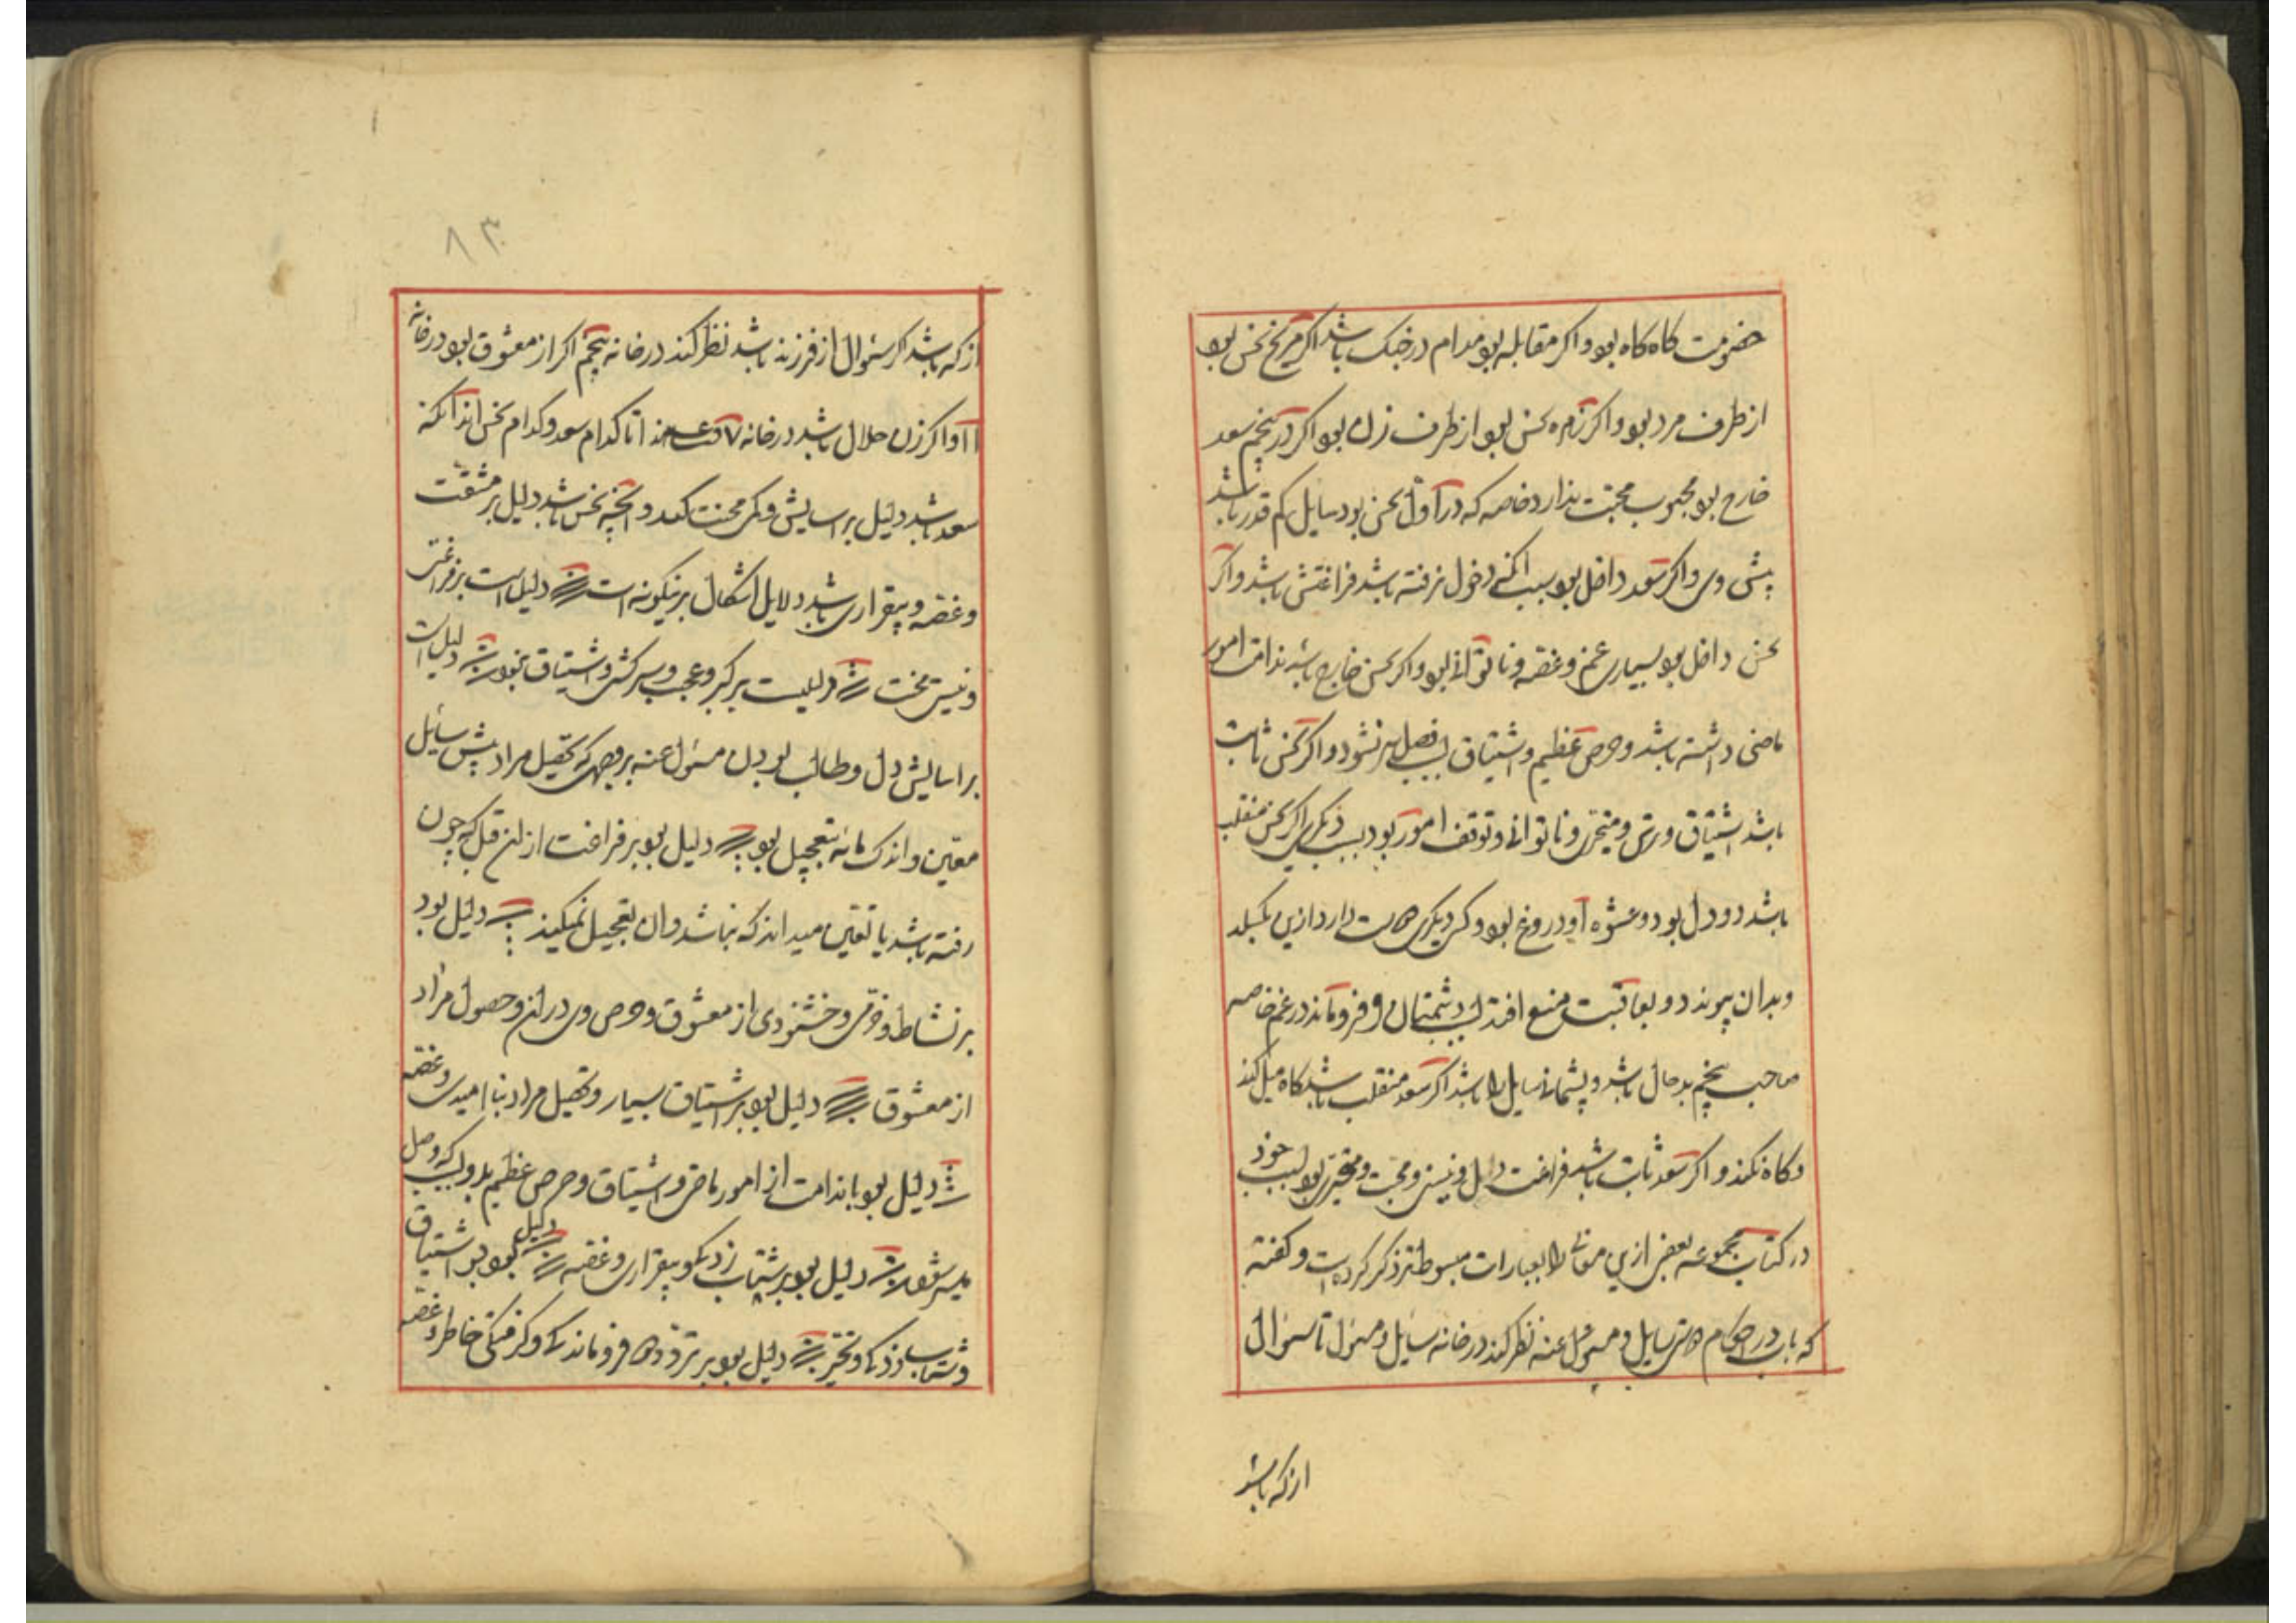 خصومت کاه کاه بود و اکر مقابله بود مدام در جنک باشد اکر مریخ نحس بود
از طرف مرد بود و اکر زهره نحس بود از طرف زن بود اکر در پنجم سعد
خارج بود محبوب محبت ندارد خاصه که در اول نحس بود سایل کم قدر باشد
پیش وی و اکر سعد داخل بود بسبب آنکه دخول نرفته باشد فراغتش باشد و اکر
نحس داخل بود بسیاری غم و غصه و ناتوانی بود و اکر نحس خارج باشد ندامت امور
ماضی داشته باشد و حرص عظیم و اشتیاق فصل نشود و اکر نحس ثابت
باشد اشتیاق و متحیری و ناتوانی و توقف امور بود بسبب دیگری اکر نحس منقلب
باشد دو دل بود و عشوه او دروغ بود و کس دیگری دارد ازین بگسلد
و بدان پیوندد و بعاقبت افتد دشمنان و فروماند در غم خاصه
صاحب پنجم بدحال باشد و پشیمانی سایل را باشد اکر سعد منقلب باشد کاه میل کند
و کاه نکند و اکر سعد ثابت باشد فراغت دل و محبت و متحیری بود بسبب خود
در کتاب مجموعه بعضی ازین معانی را بعبارات مبسوط تر ذکر کرده است و کفته
که باید در احکام سایل و مسئول عنه نظر کند در خانه سایل و مسئول تا سئوال
از که باشد
۸۳
از که باشد اکر سئوال از فرزند باشد نظر کند در خانه پنجم اکر از معشوق بود در خانه
۱۱ و اکر زن حلال باشد در خانه ۷ تا کدام سعد و کدام نحس اند آنکه
سعد باشد دلیل بر آسایش و کم محنت کند و آنچه نحس باشد دلیل بر مشقت
و غصه و بیقراری باشد دلایل اشکال برینکونه است دلیل است بر فراغت
و نیستی بخت دلیلست بر کبر و عجب و سرکشی و اشتیاق بود دلیل است
بر آسایش دل و طالب بودن مسئول عنه بر وجهی که تحصیل مراد پیش سائل
معین و اندک مایه تعجیل بود دلیل بود بر فراغت از ان قبل که چون
رفته باشد یا تعین میداند که بباشد و ان تعجیل نمیکند دلیل بود
بر نشاط و خرمی و خشنودی از معشوق و حرص وی در ان و حصول مراد
از معشوق دلیل بود بر اشتیاق بسیار و تحصیل مراد بنا امیدی و غصه
دلیل بود با ندامت از امور ماضی و اشتیاق و حرص عظیم بدو بسبب که وصل
میسر نشود دلیل بود بر شتاب زدکی و بیقراری و غصه دلیل بود بر اشتیاق
و شتاب زدکی و تحیر دلیل بود بر تردد و فروماندکی و کرفتکی خاطر و غصه